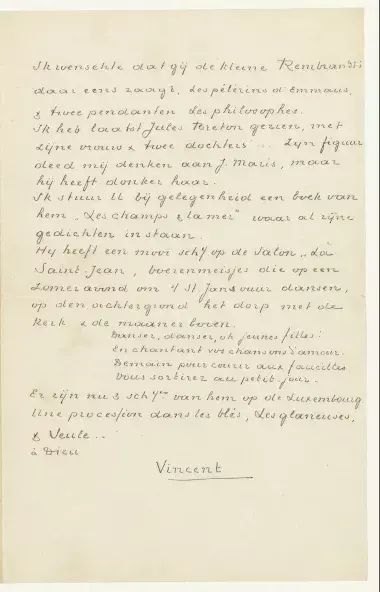 Ik wenschte dat gij de kleine Rembrandts
daar eens zaagt, Les pélerins d'Emmaus,
& twee pendanten Les philosophes.
Ik heb laatst Jules Breton gezien, met
zijne vrouw & twee dochters... Zijn figuur
deed mij denken aan J. Maris, maar
hij heeft donker haar.
Ik stuur U bij gelegenheid een boek van
hem „Les champs & la mer" waar al zijne
gedichten in staan.
Hij heeft een mooi schij op de Salon „La
Saint-Jean, boerenmeisjes die op een
zomeravond om 't St Jans vuur dansen,
op den achtergrond het dorp met de
kerk & de maan er boven.
Danser, danser, oh jeunes filles!
En chantant vos chansons d'amour.
Demain pour courir aux faucilles
Vous sortirez au petit-jour.
Er zijn nu 3 schijen van hem op de Luxembourg
Une procession dans les blés, Les glaneuses,
& Seule..
à Dieu
Vincent